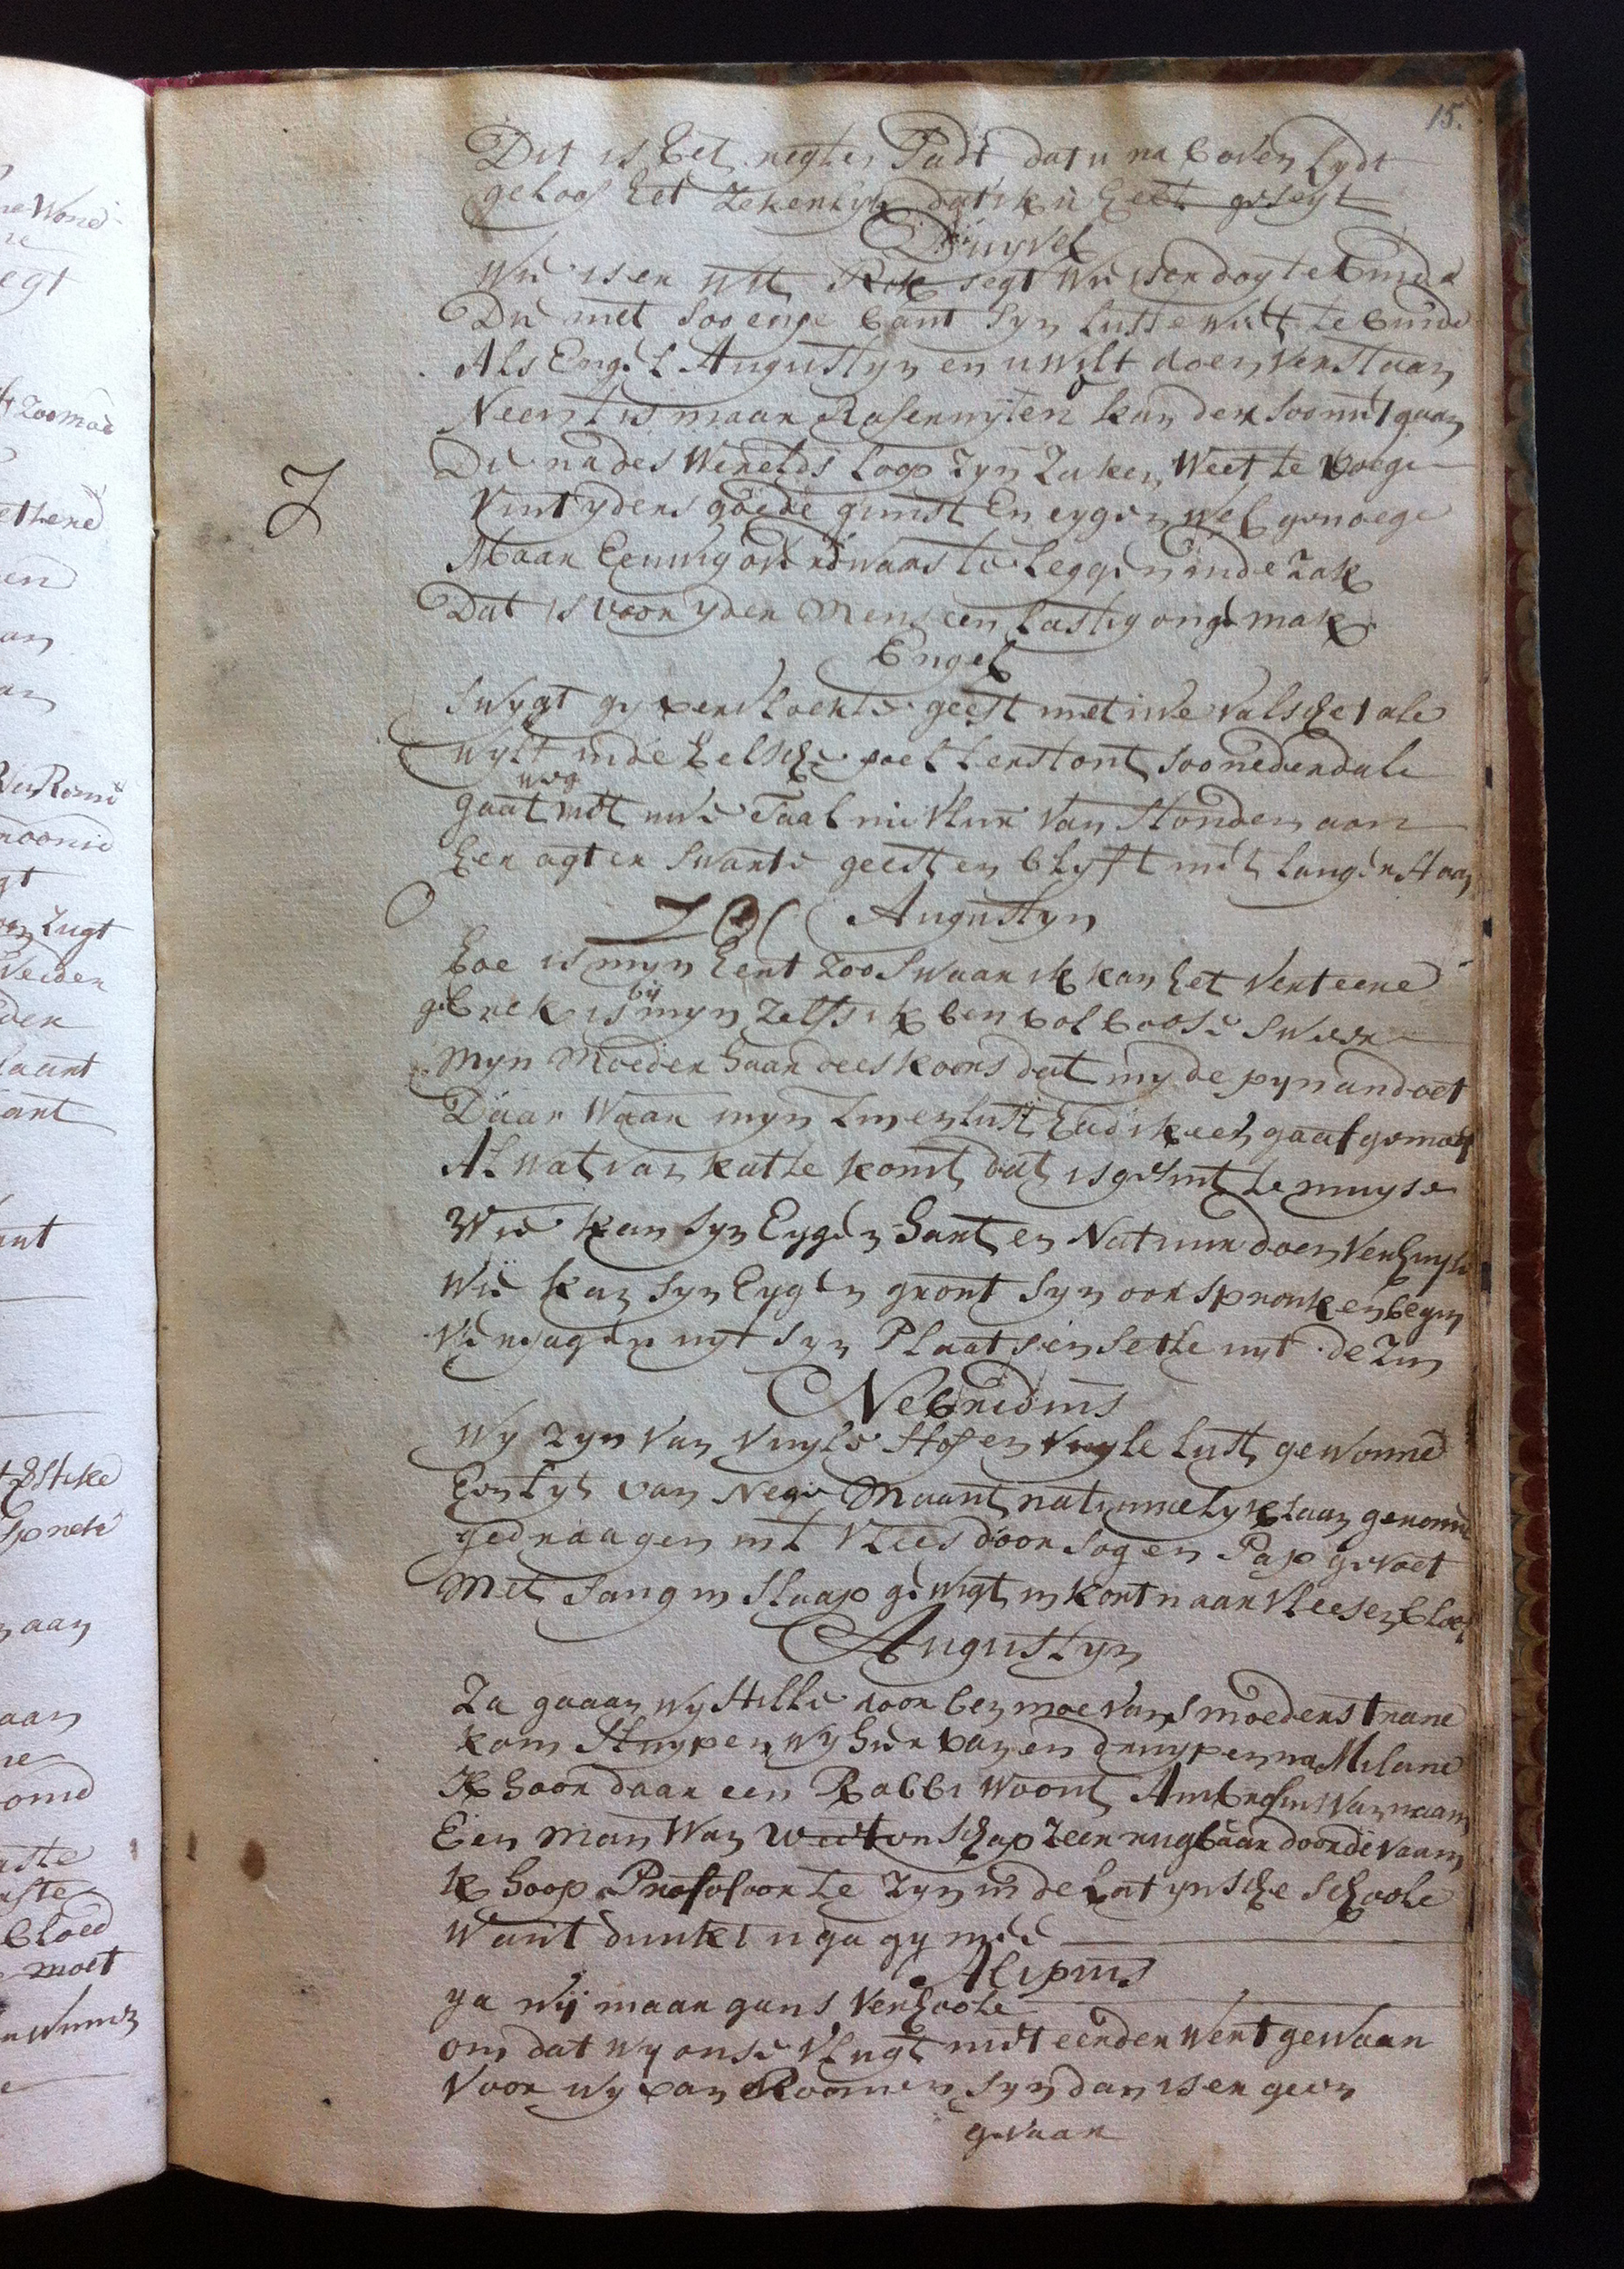 15.
Dit is het regten Padt dat u na boven Lydt
geloof het zekerlyk dat ik u heet geseyt
Duyvel
Wie is er uit Rok segt wie is er dog te vinde
Die met soo enge bant syn luste wilt te binde
Als Engel Augustyn en u wilt doen verstaan
Neen t is maar Rasernyten kan der soo niet gaan
Die na des Werelds loop zyn zaken weet te voege
Vint yders goede gunst En eygen wel genoege
Maar Eeuwig overdwaars te leggen in de zak
Dat is voor yder Mens een lastig ongemak
Engel
Swygt gy vervloekte geest met uwe valsche tale
wylt in de helsche poel terstont soo nederdale
weg
gaat met uwe Taal nu vlur van stonden aan
her agter swarte geest en blyft niet langer staan
Augustyn
hoe is myn hert zoo swaar ik kan het verteere
gebrek is bij myn zelfs ik ben vol boose sweere
myn moeder haar dees koors dat my de pyn andoet
Daar waar myn zin en lust had ik een gaaf gemoet
Al wat van katte komt dat is gesint te muyse
Wie kan syn Eygen hart en Natuur doen verhuyse
Wie kan syn Eygen gront syn oorspronk en begin
Verjagen uyt syn Plaats en sette uyt de zin
Nebridius
Wy zyn van vuyle stof en vuyle lust gewonne
Een tyt van Nege Maant natuurrelyk laan geronne
gedraagen int vlees door sog en Pap gevoet
Met sang in slaap gewigt in kort naar vlees en bloet
Augustyn
Za gaaan wy stille door ben moe van s moeders trane
kom sluypen wy hier van en druypen na Milane
Ik hoor daar een Rabbi woont Ambrosius van naam
Een man van weetenschap zeer rugbaar door de vaam
Ik hoop Profofoor te zyn in de Latynsche schoole
Want dunkt u ga gy mee
Alipius
ya wij maar gans verhoole
om dat wy onse vlugt niet eerder wert gewaar
Voor wy van Roomen syn dan is er geen
gevaar